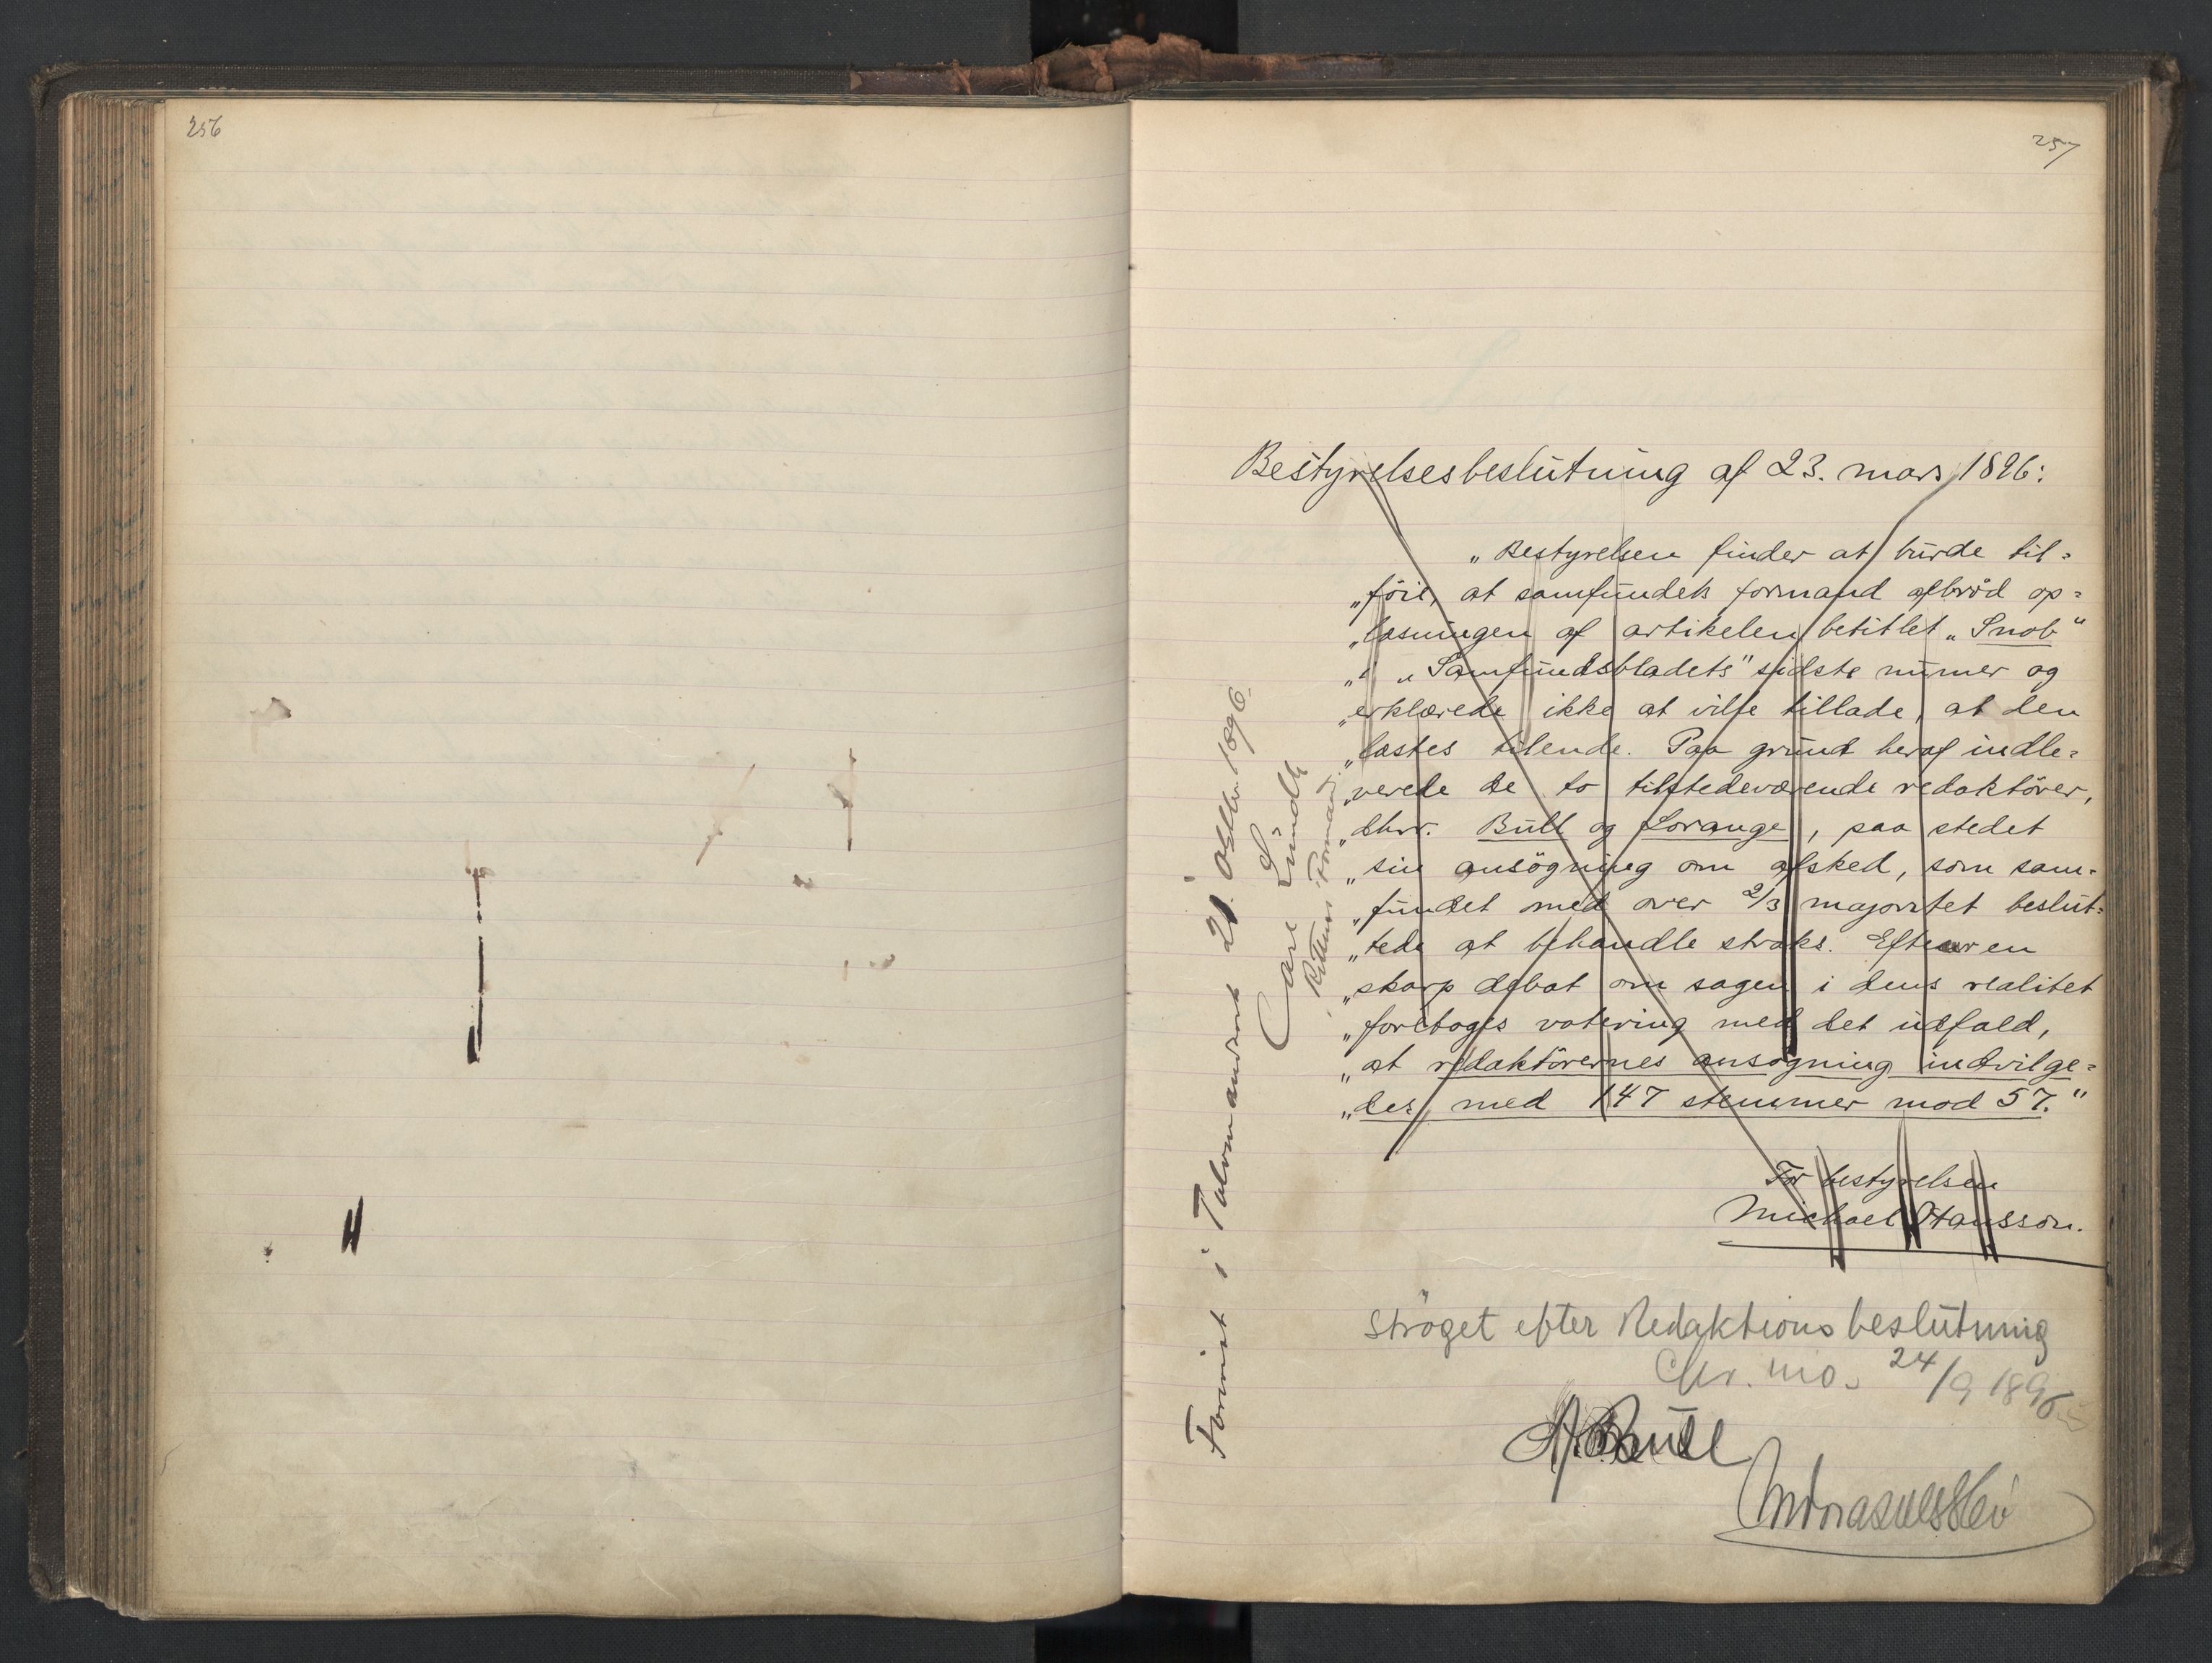 256
257
Bestyrelsesbeslutning af 23. mars 1896:
„Bestyrelsen finder at burde til=
„föie, at samfundets formand afbröd op=
„læsningen af artikelen betitlet „Snob"
„i „Samfundsbladets" sidste numer og
„erklærede ikke at ville tillade, at den
„læstes tilende. Paa grund heraf indle=
„verede de to tilstedeværende redaktörer,
„dhrr. Bull og Lorange, paa stedet
„sin ansögning om afsked, som sam=
„fundet med over 2/3 majoritet beslut=
„tede at behandle straks. Efter en
„skarp debat om sagen i dens realitet
„foretoges votering med det udfald,
„at redaktörernes ansögning indvilge=
„des med 147 stemmer mod 57."
For bestyrelsen
Michael Hansson.
Ströget efter Redaktionsbeslutning
Chr. 24/9 1896
Bull
Forevist i 21. Oktbr. 1896.
Carl Lundh
Rettens Formand.